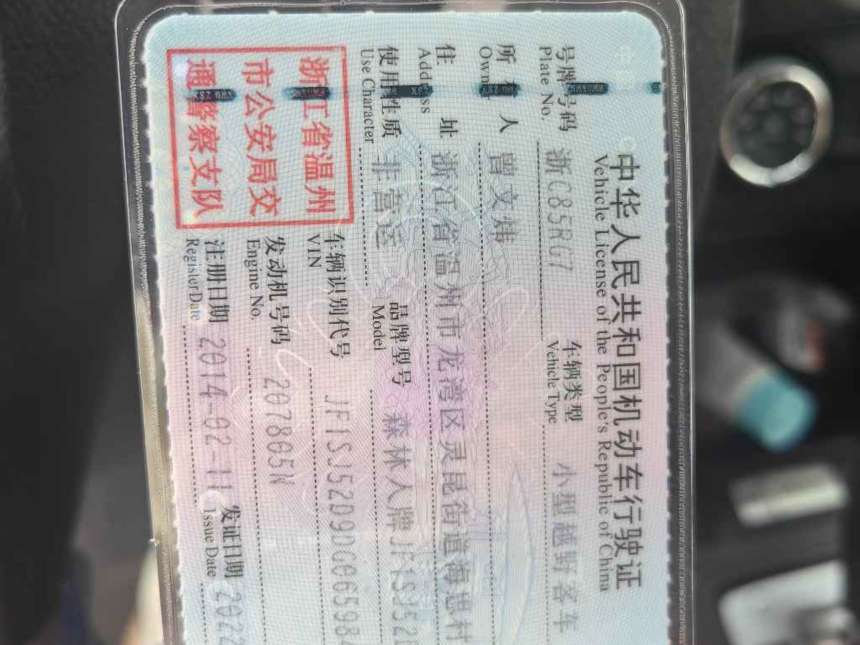 中华人民共和国机动车行驶证
Vehicle License of the People's Republic of China
号牌号码 浙C85RG7 车辆类型 小型越野客车
Plate No. Vehicle Type
所有人 曾文炜
Owner
住址 浙江省温州市龙湾区灵昆街道海思村
Address
使用性质 非营运 品牌型号 森林人牌JF1SJ52
Use Character Model
浙江省温州
市公安局交
通警察支队
车辆识别代号 JF1SJ52D9DG06598
VIN
发动机号码 207805W
Engine No.
注册日期 2014-02-11 发证日期 2022
Register Date Issue Date